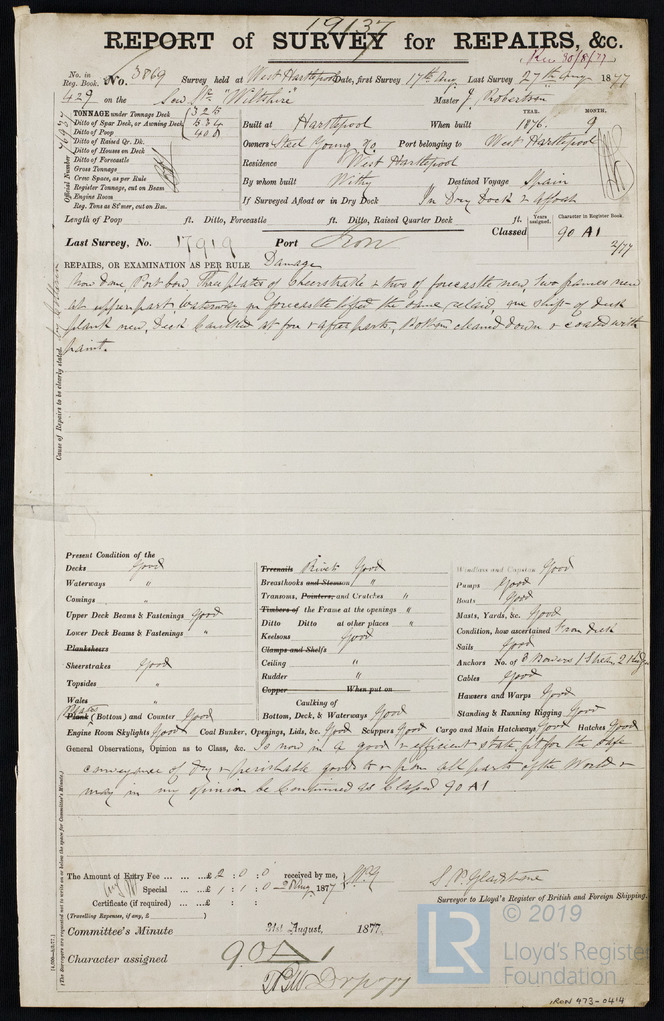 19137
REPORT of SURVEY for REPAIRS, &c.
Rec 30/8/77
No. in Reg. Book. No. 3869 Survey held at West Hartlepool Date, first Survey 17th Aug Last Survey 27th Aug 1877
429 on the Scw Str "Wiltshire" Master J. Robertson
TONNAGE under Tonnage Deck 325
Ditto of Spar Deck, or Awning Deck 534
Ditto of Poop 400
Ditto of Raised Qr. Dk.
Ditto of Houses on Deck
Ditto of Forecastle
Gross Tonnage
Crew Space, as per Rule
Register Tonnage, cut on Beam
Engine Room
Reg. Tons as St'mer, cut on Bm.
Official Number
Built at Hartlepool When built YEAR. 1876. MONTH. 9
Owners Steel Young & Co. Port belonging to West Hartlepool
Residence West Hartlepool
By whom built Withy Destined Voyage Spain
If Surveyed Afloat or in Dry Dock In Dry Dock & afloat
Length of Poop ft. Ditto, Forecastle ft. Ditto, Raised Quarter Deck ft.
Years assigned. Character in Register Book.
Classed 90 A1
2/77
Last Survey, No. 17919 Port Iron
REPAIRS, OR EXAMINATION AS PER RULE Damage
Now done Port bow, Three plates of sheerstrake & two of forecastle new, two frames new
at upper part, Waterway on forecastle lifted the same relaid, one shift of deck
plank new, Deck Caulked at fore & after parts, Bottom cleaned down & coated with
paint.
Cause of Repairs to be clearly stated.
Present Condition of the
Decks Good
Waterways "
Comings "
Upper Deck Beams & Fastenings Good
Lower Deck Beams & Fastenings "
Planksheers
Sheerstrakes Good
Topsides "
Wales "
Plates
Plank (Bottom) and Counter Good
Treenails Rivets Good
Breasthooks and Stemson "
Transoms, Pointers, and Crutches "
Timbers of the Frame at the openings "
Ditto Ditto at other places "
Keelsons Good
Clamps and Shelfs
Ceiling "
Rudder "
Copper When put on
Caulking of
Bottom, Deck, & Waterways Good
Windlass and Capstan Good
Pumps Good
Boats Good
Masts, Yards, &c. Good
Condition, how ascertained From deck
Sails Good
Anchors No. of 3 Bowers 1 Stream 2 Kedges
Cables Good
Hawsers and Warps Good
Standing & Running Rigging Good
Engine Room Skylights Good Coal Bunker, Openings, Lids, &c. Good Scuppers Good Cargo and Main Hatchways Good Hatches Good
General Observations, Opinion as to Class, &c. Is now in a good & efficient state fit for the safe
conveyance of dry & perishable goods to & from all parts of the World &
may in my opinion be Continued as Classed 90 A1
(The Surveyors are requested not to write on or below the space for Committee's Minute.)
The Amount of Entry Fee ... ... ... £ 2 : 0 : 0 received by me,
Special ... £ 1 : 1 : 0 28 Aug 1877
Certificate (if required) ... £ : :
(Travelling Expenses, if any, £ )
S. P. Gladstone
Surveyor to Lloyd's Register of British and Foreign Shipping.
Committee's Minute 31st August, 1877
Character assigned 90 A 1
LR © 2019
Lloyd's Register
Foundation
IRON 473-0414